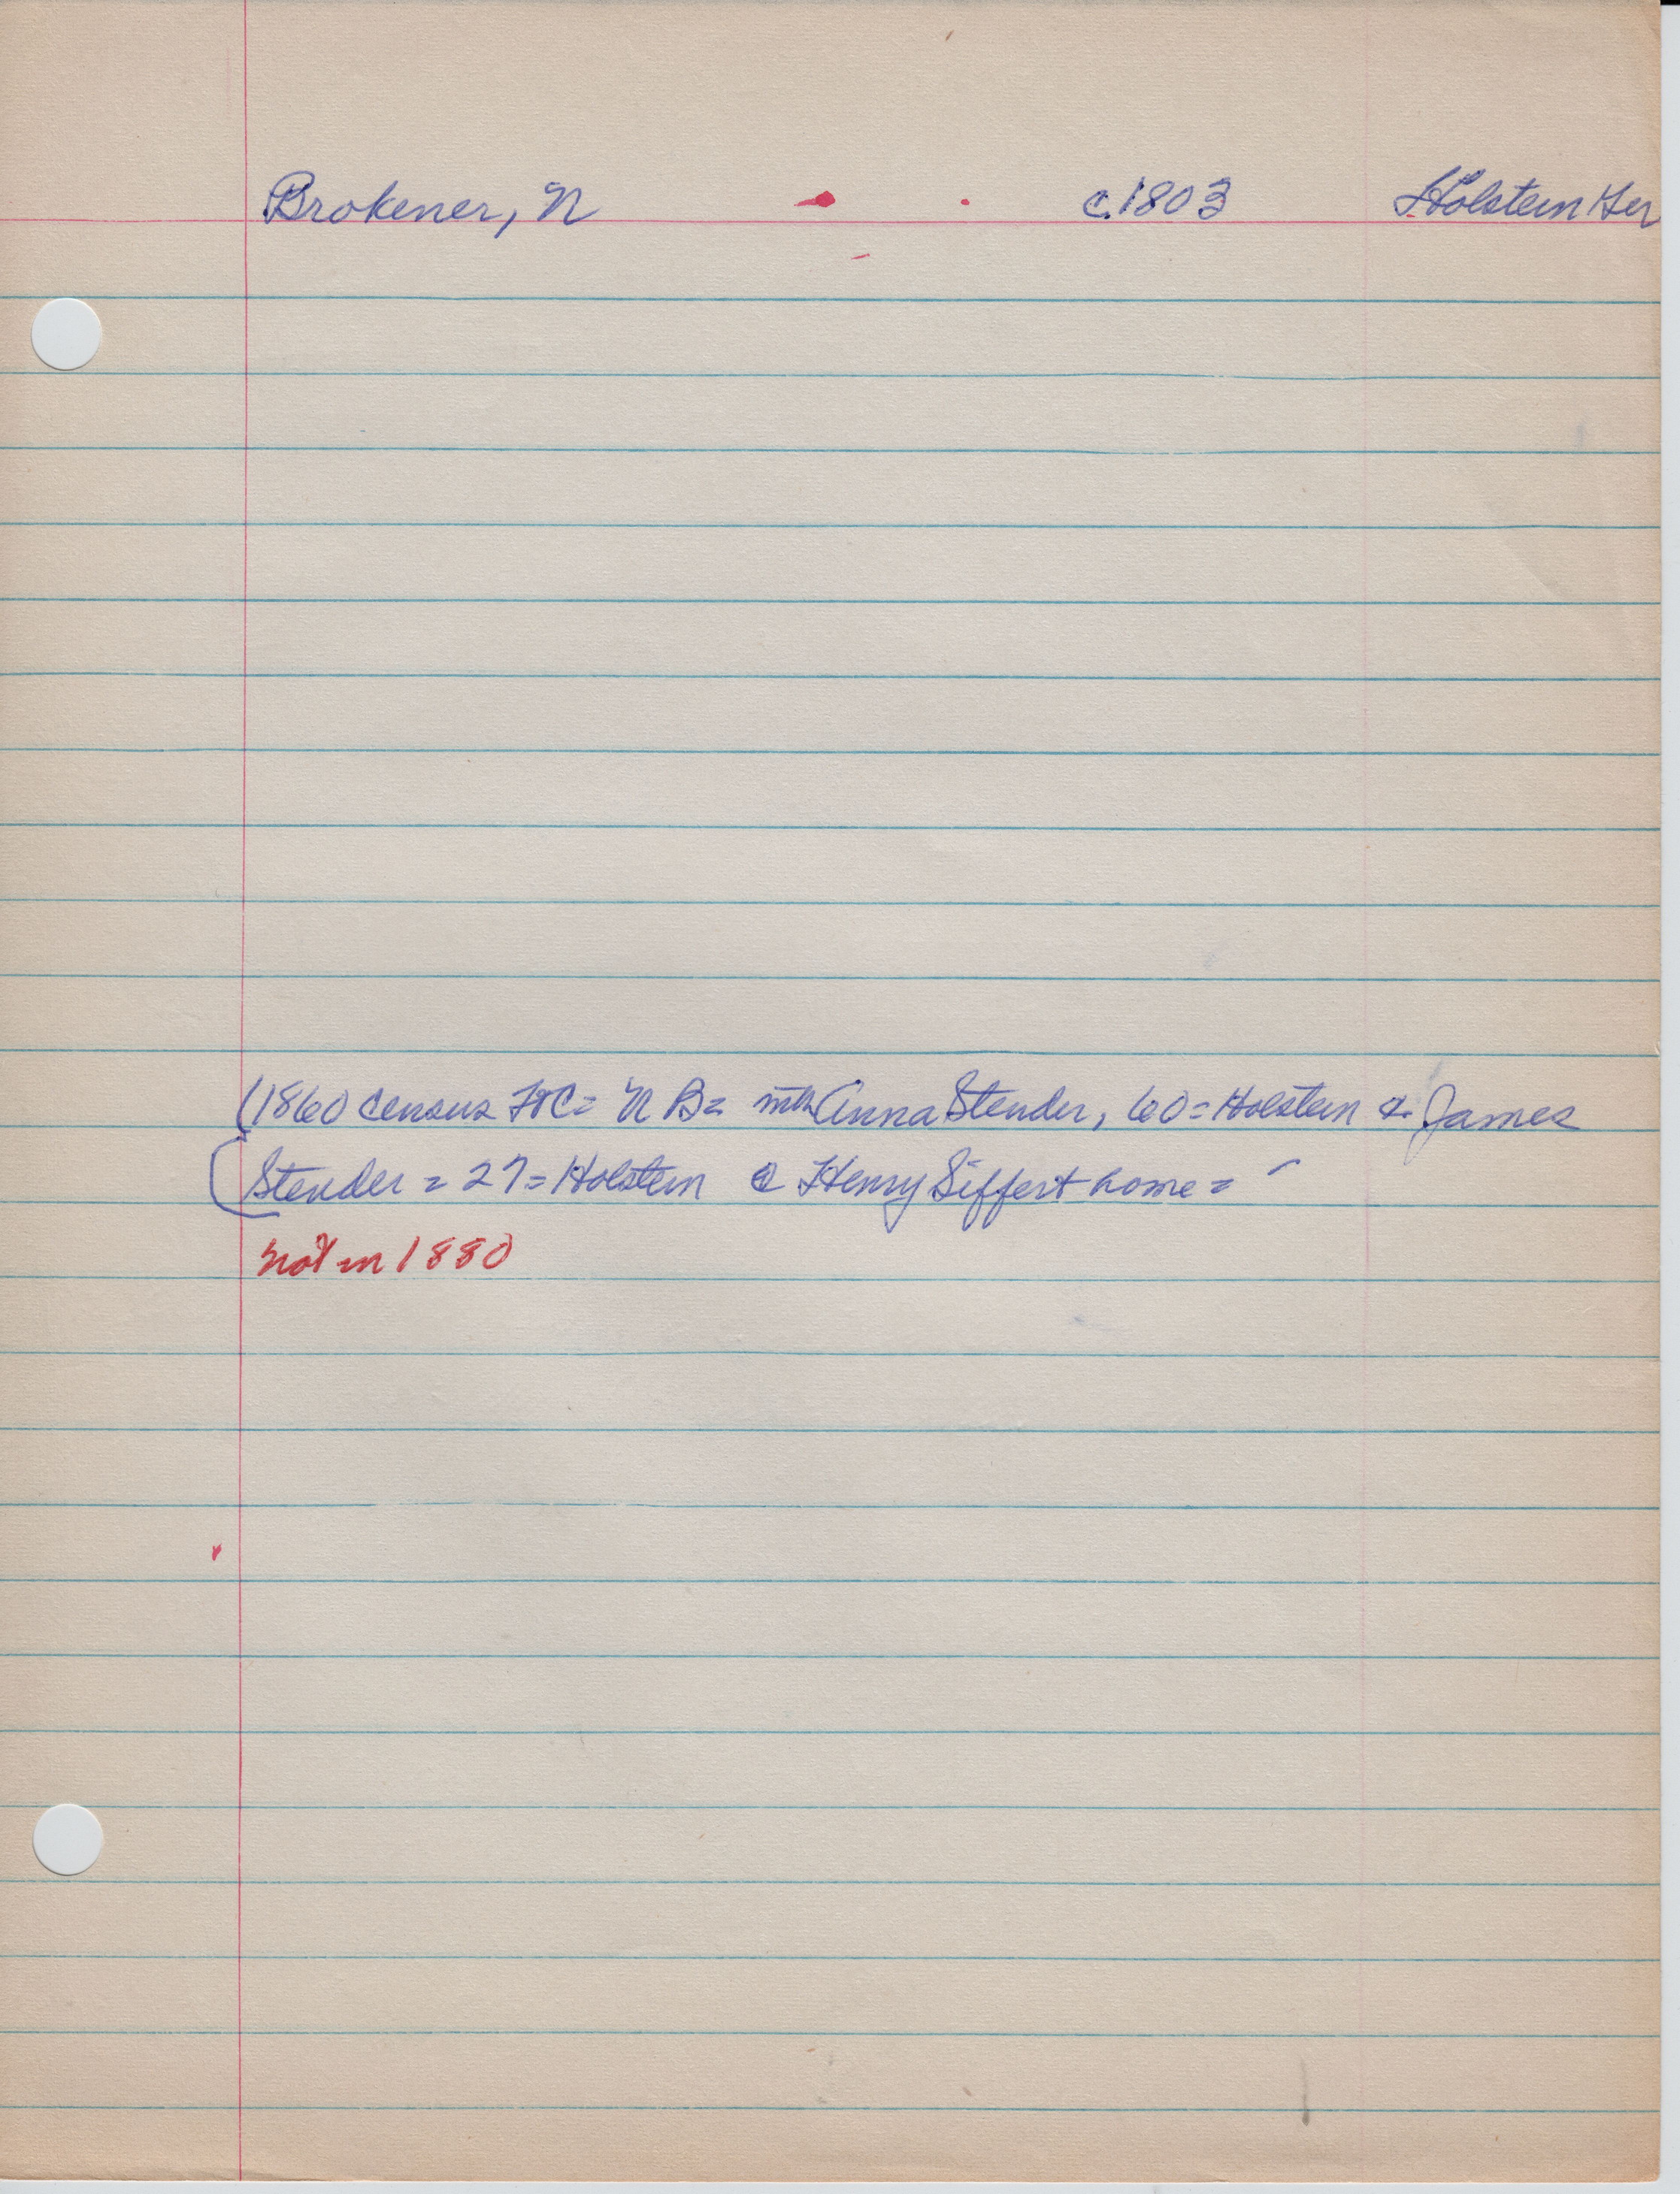 Brokener, N c.1803 Holstein Ger
(1860 census HC= N B= mth Anna Stender, 60=Holstein & James
(Stender = 27=Holstein @ Henry Siffert home=
not in 1880